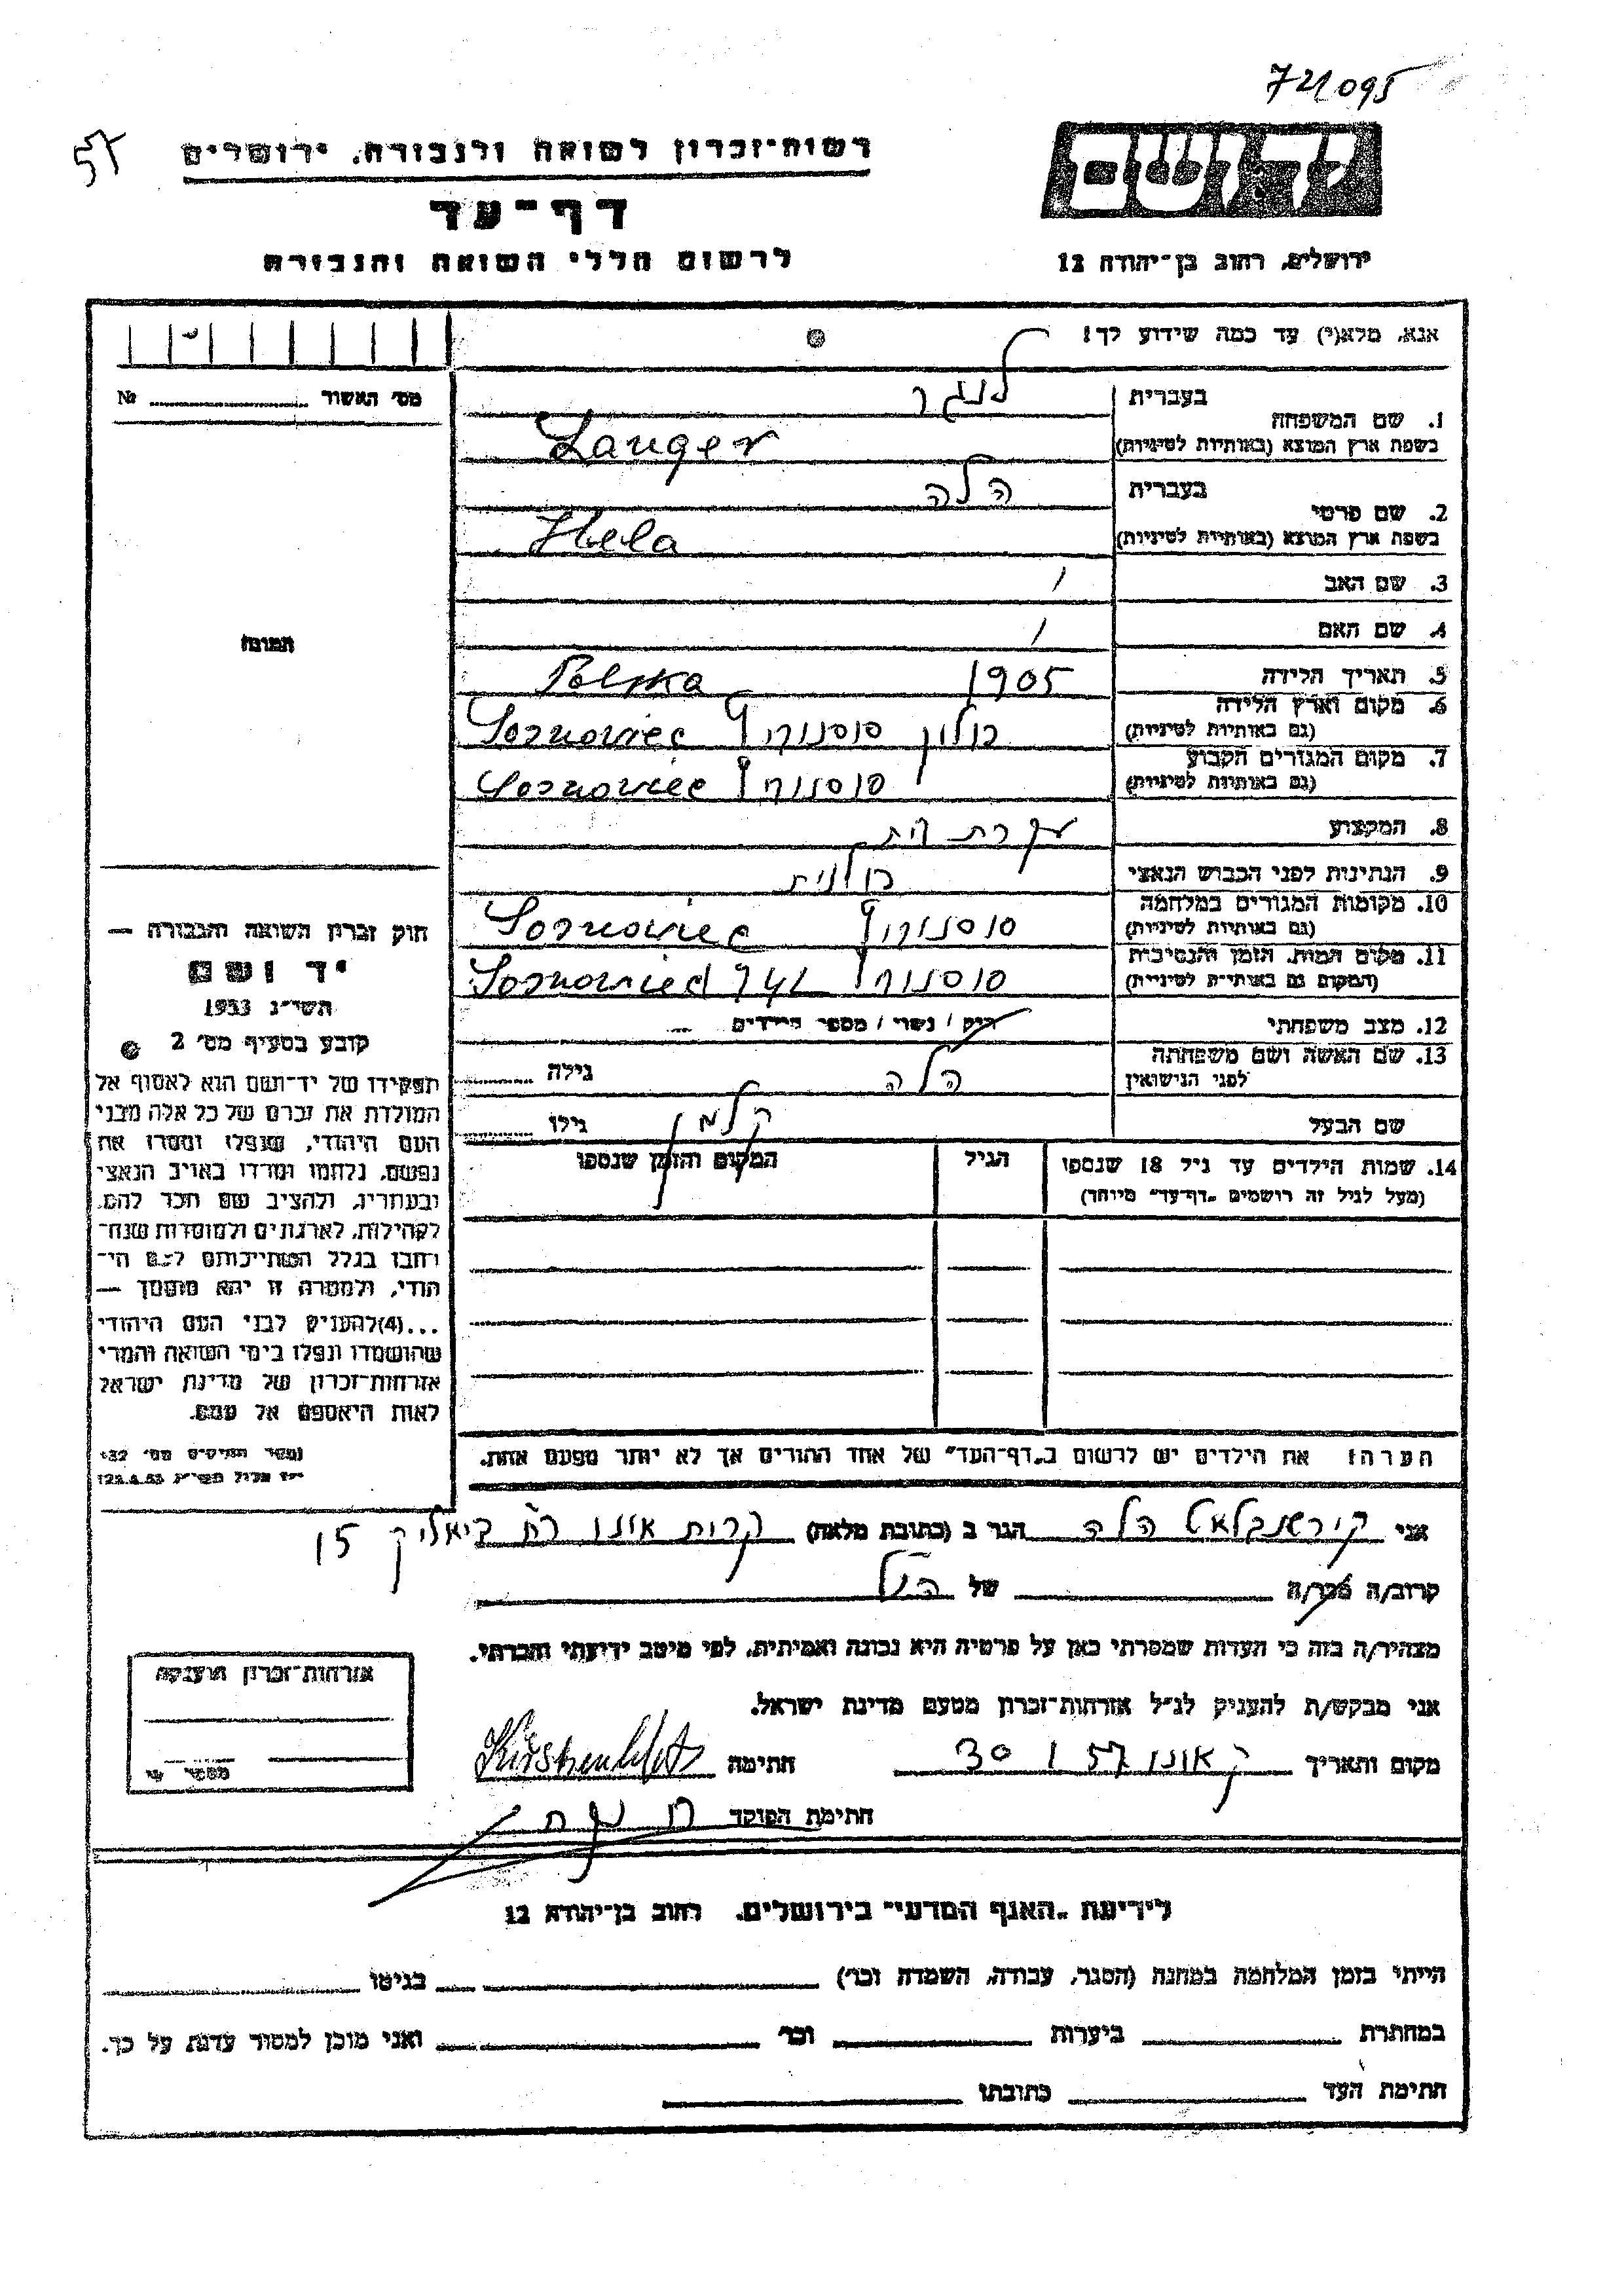 721095
רשות־זכרון לשואה ולגבורה, ירושלים
דף־עד
לרשום חללי השואה והגבורה
יד ושם
ירושלים, רחוב בן־יהודה 12
אנא, מלא(י) עד כמה שידוע לך!
מס׳ האשור № 
1. שם המשפחה בעברית לנגר
בשפת ארץ המוצא (באותיות לטיניות) Langer
2. שם פרטי בעברית הלה
בשפת ארץ המוצא (באותיות לטיניות) Hela
3. שם האב /
4. שם האם /
תמונה
5. תאריך הלידה 1905 Polska
6. מקום וארץ הלידה
(גם באותיות לטיניות) פולין סוסנוביץ Sosnowiec
7. מקום המגורים הקבוע
(גם באותיות לטיניות) סוסנוביץ Sosnowiec
8. המקצוע עקרת בית
9. הנתינות לפני הכבוש הנאצי פולנית
10. מקומות המגורים במלחמה
(גם באותיות לטיניות) סוסנוביץ Sosnowiec
11. מקום המות, הזמן והנסיבות
(המקום גם באותיות לטיניות) סוסנוביץ Sosnowiec
12. מצב משפחתי רווק / נשוי / מספר הילדים
13. שם האשה ושם משפחתה
לפני הנישואין הלה גילה
שם הבעל קלמן גילו
14. שמות הילדים עד גיל 18 שנספו
(מעל לגיל זה רושמים „דף־עד״ מיוחד)
הגיל
המקום והזמן שנספו
חוק זכרון השואה והגבורה —
יד ושם
תשי״ג 1953
קובע בסעיף מס׳ 2
תפקידו של יד־ושם הוא לאסוף אל
המולדת את זכרם של כל אלה מבני
העם היהודי, שנפלו ומסרו את
נפשם, נלחמו ומרדו באויב הנאצי
ובעוזריו, ולהציב שם וזכר להם,
לקהילות, לארגונים ולמוסדות שנח־
רבו בגלל השתייכותם לעם הי־
הודי, ולמטרה זו יהא מוסמך —
...(4)להעניק לבני העם היהודי
שהושמדו ונפלו בימי השואה והמרי
אזרחות־זכרון של מדינת ישראל
לאות היאספם אל עמם.
הערה: את הילדים יש לרשום ב„דף־העד״ של אחד ההורים אך לא יותר מפעם אחת.
אני קירשנבלאט הלה הגר ב (כתובת מלאה) קרית אונו רח׳ ביאליק 15
קרוב/ה מכר/ה של הנ״ל
מצהיר/ה בזה כי העדות שמסרתי כאן על פרטיה היא נכונה ואמיתית, לפי מיטב ידיעתי והכרתי.
אני מבקש/ת להעניק לנ״ל אזרחות־זכרון מטעם מדינת ישראל.
מקום ותאריך ק׳ אונו 30 1 57 חתימה Kirshenblat
חתימת הפוקד
אזרחות־זכרון הוענקה
מספר
לידיעת „האגף המדעי״ בירושלים, רחוב בן־יהודה 12
הייתי בזמן המלחמה במחנה (הסגר, עבודה, השמדה וכו׳) בגיטו
במחתרת ביערות וכו׳ ואני מוכן למסור עדות על כך.
חתימת העד כתובתו